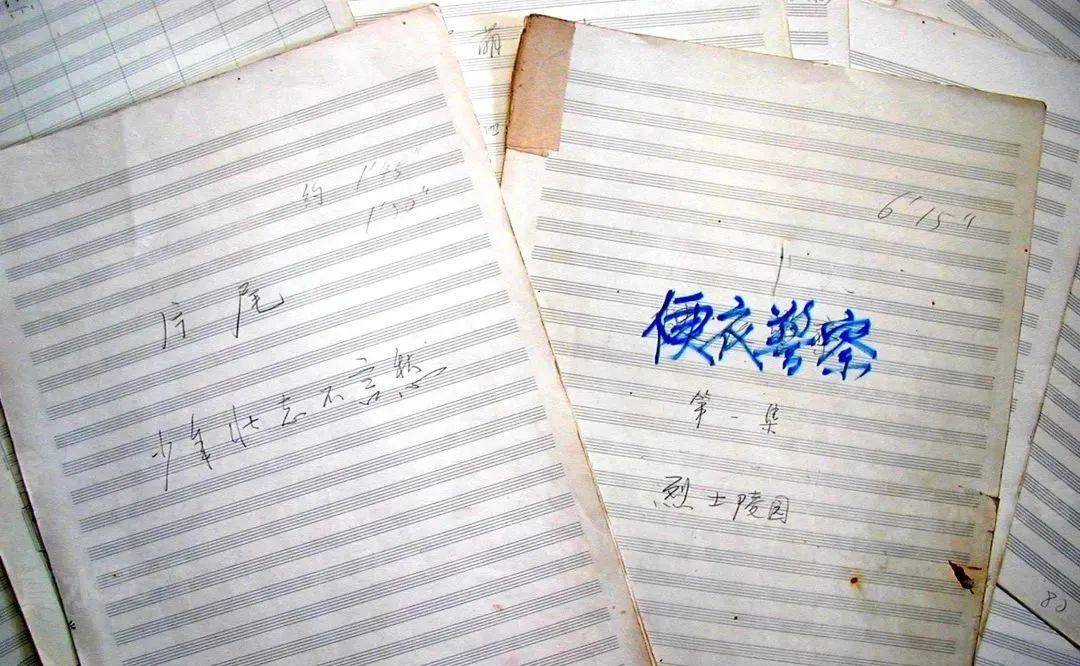 约 1'45"
1'50"
片尾
少年壮志不言愁
6'15"
便衣警察
第一集
烈士陵园
萌
80